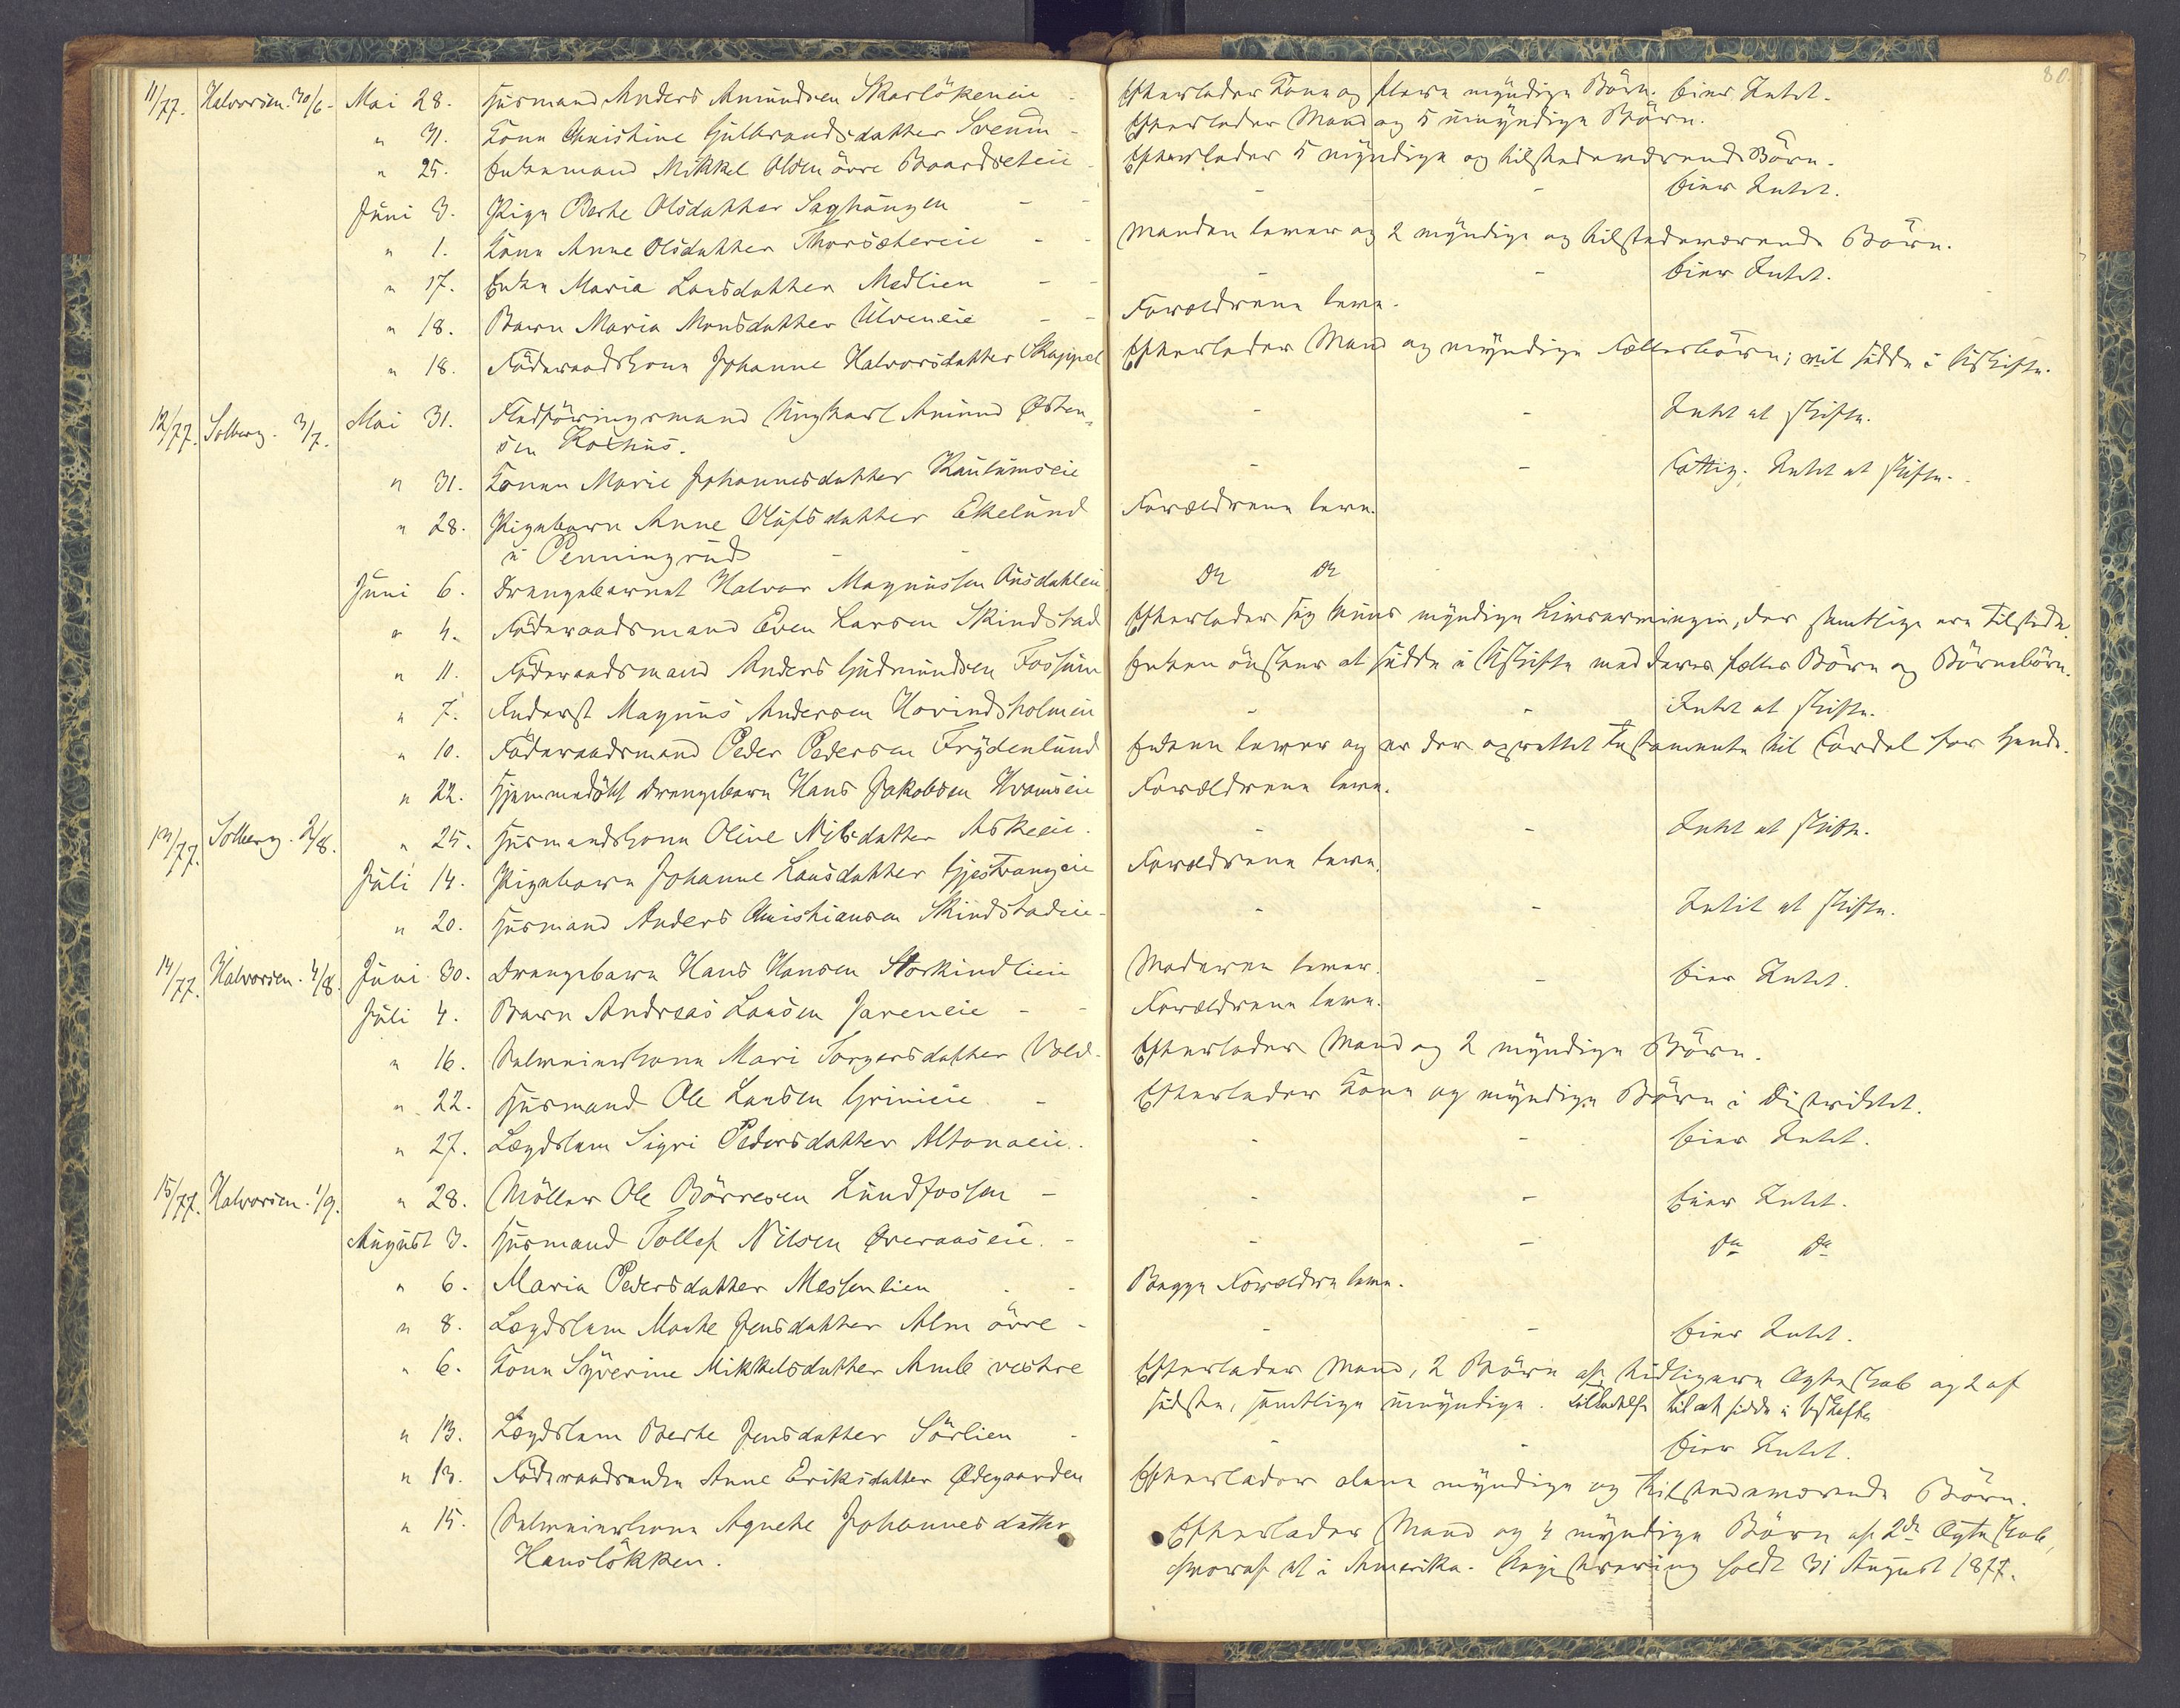 80.
11/77. Halvorsen. 30/6 - Mai 28. Husmand Anders Amundsen Skarlökeneie - Efterlader Kone og flere myndige Börn. Eier Intet.
" 31. Kone Christine Gulbrandsdatter Sveum - Efterlader Mand og 5 umyndige Börn.
" 25. Enkemand Mikkel Olsen övre Baardseteie - Efterlader 5 myndige og tilstedeværende Börn.
Juni 3. Pige Berte Olsdatter Saghaugen - - - - Eier Intet.
" 1. Kone Anne Olsdatter Thorsætereie - - Manden lever og 2 myndige og tilstedeværende Börn.
" 17. Enke Maria Larsdatter Medlien - - - - Eier Intet.
" 18. Barn Maria Monsdatter Ulveneie - - Forældrene leve.
" 18. Föderaadskone Johanne Halvorsdatter Skappel Efterlader Mand og myndige Fællesbörn; vil sidde i Uskifte.
12/77. Solberg. 3/7. Mai 31. Fladföringsmand Ungkarl Amund Østen- - - Intet at skifte.
sen Kothus.
" 31. Konen Marie Johannesdatter Kaulumseie - - Fattig. Intet at skifte.
" 28. Pigebarn Anne Olufsdatter Ekelund Forældrene leve.
u Penningrud - -
Juni 6. Drengebarnet Halvor Magnussen Aasdahlen Do Do
" 4. Föderaadsmand Even Larsen Skindstad Efterlader sig kuns myndige Livsarvinger, der samtlige ere tilstede.
" 11. Föderaadsmand Anders Gudmundsen Fossum Enken önsker at sidde i Uskifte med deres fælles Börn og Börnebörn.
" 7. Inderst Magnus Andersen Hovindsholmen - - Intet at skifte.
" 10. Föderaadsmand Peder Pedersen Frydenlund Enken lever og er der oprettet Testamente til Fordel for hende.
" 22. Hjemmedöbt Drengebarn Hans Jakobsen Hvamseie Forældrene leve.
13/77. Solberg. 2/8. " 25. Husmandskone Oline Nilsdatter Askeeie. - - Intet at skifte.
Juli 14. Pigebarn Johanne Larsdatter Gjestvangeie Forældrene leve.
" 20. Husmand Anders Christiansen Skindstadeie - - - Intet at skifte.
14/77. Halvorsen. 4/8. Juni 30. Drengebarn Hans Hansen Storkindlieie Moderen lever. - Eier Intet.
Juli 4. Barn Andreas Larsen Jareneie - - Forældrene leve.
" 16. Selveierkone Mari Torgersdatter Vold - Efterlader Mand og 2 myndige Börn.
" 22. Husmand Ole Larsen Grinieie - Efterlader Kone og myndige Börn i Distriktet.
" 27. Lægdslem Sigri Pedersdatter Altonaeie. - - Eier Intet.
15/77. Halvorsen. 1/9. " 28. Möller Ole Börresen Lundfossen - - - Eier Intet.
August 3. Husmand Tollef Nilsen Øveraaseie. - - - Do Do
" 6. Maria Pedersdatter Messenlien - - Begge Forældre leve.
" 8. Lægdslem Marte Jensdatter Alm övre - - - Eier Intet.
" 6. Kone Syverine Mikkelsdatter Amb vestre Efterlader Mand, 2 Börn af tidligere Ægteskab og 2 af
sidste, samtlige umyndige. Tilladelse til at sidde i Uskifte
" 13. Lægdslem Berte Jensdatter Sörlien - - - Eier Intet.
" 13. Föderaadsenke Anne Eriksdatter Ødegaarden Efterlader alene myndige og tilstedeværende Börn.
" 15. Selveierkone Agnete Johannesdatter Efterlader Mand og 4 myndige Börn af 2det Ægteskab,
Hanslökken. hvoraf et i Amerika. Registrering holdt 31 August 1877.